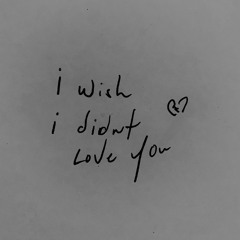 i wish
i didnt
love you